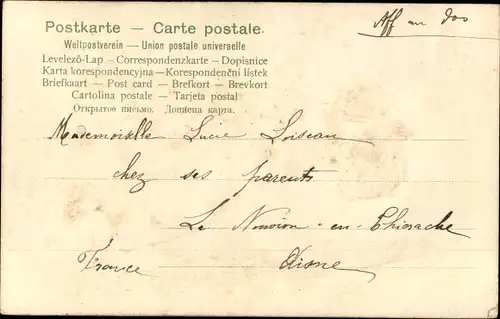 Aff au dos
Postkarte – Carte postale.
Weltpostverein – Union postale universelle
Levelező-Lap – Correspondenzkarte – Dopisnice
Karta korespondencyjna – Korespondenční lístek
Briefkaart – Post card – Brefkort – Brevkort
Cartolina postale – Tarjeta postal
Открытое письмо. Дописна карта.
Mademoiselle Lucie Loiseau
chez ses parents
Le Nouvion-en-Thiérache
France Aisne